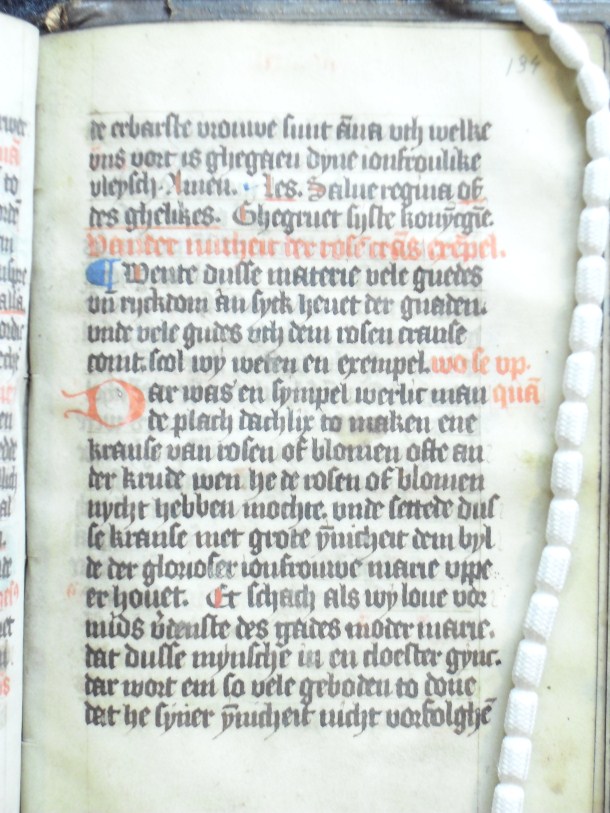 134
de erbarste vrouwe sunt āna vth welke
vns vort is ghegaen dyne ionfroulike
vleysch. Amen. Les. Salue regina of
des ghelikes. Ghegruet syste
Van der der rosecrās exēpel.
Wente dusse materie vele guedes
vn ryckdom an syck heuet der gnaden.
vnde vele gudes vth dem rosen cranse
comt. scol wy weten en exempel. wo se vp
Dar was en sympel werlic man quā
de plach dachlix to maken ene
kranse van rosen of blomen ofte an
der krude wen he de rosen of blomen
nycht hebben mochte. vnde settede dus
se kranse met grote ȳnicheit dem byl
de der glorioser ionfrouwe marie vppe
er houet. Et schach als wy loue vor
mids v̄denste des gades moder marie.
dat dusse mynschē in en cloester gync.
dar wort em so vele geboden to done
dat he syner ȳnicheit nicht voruolghē